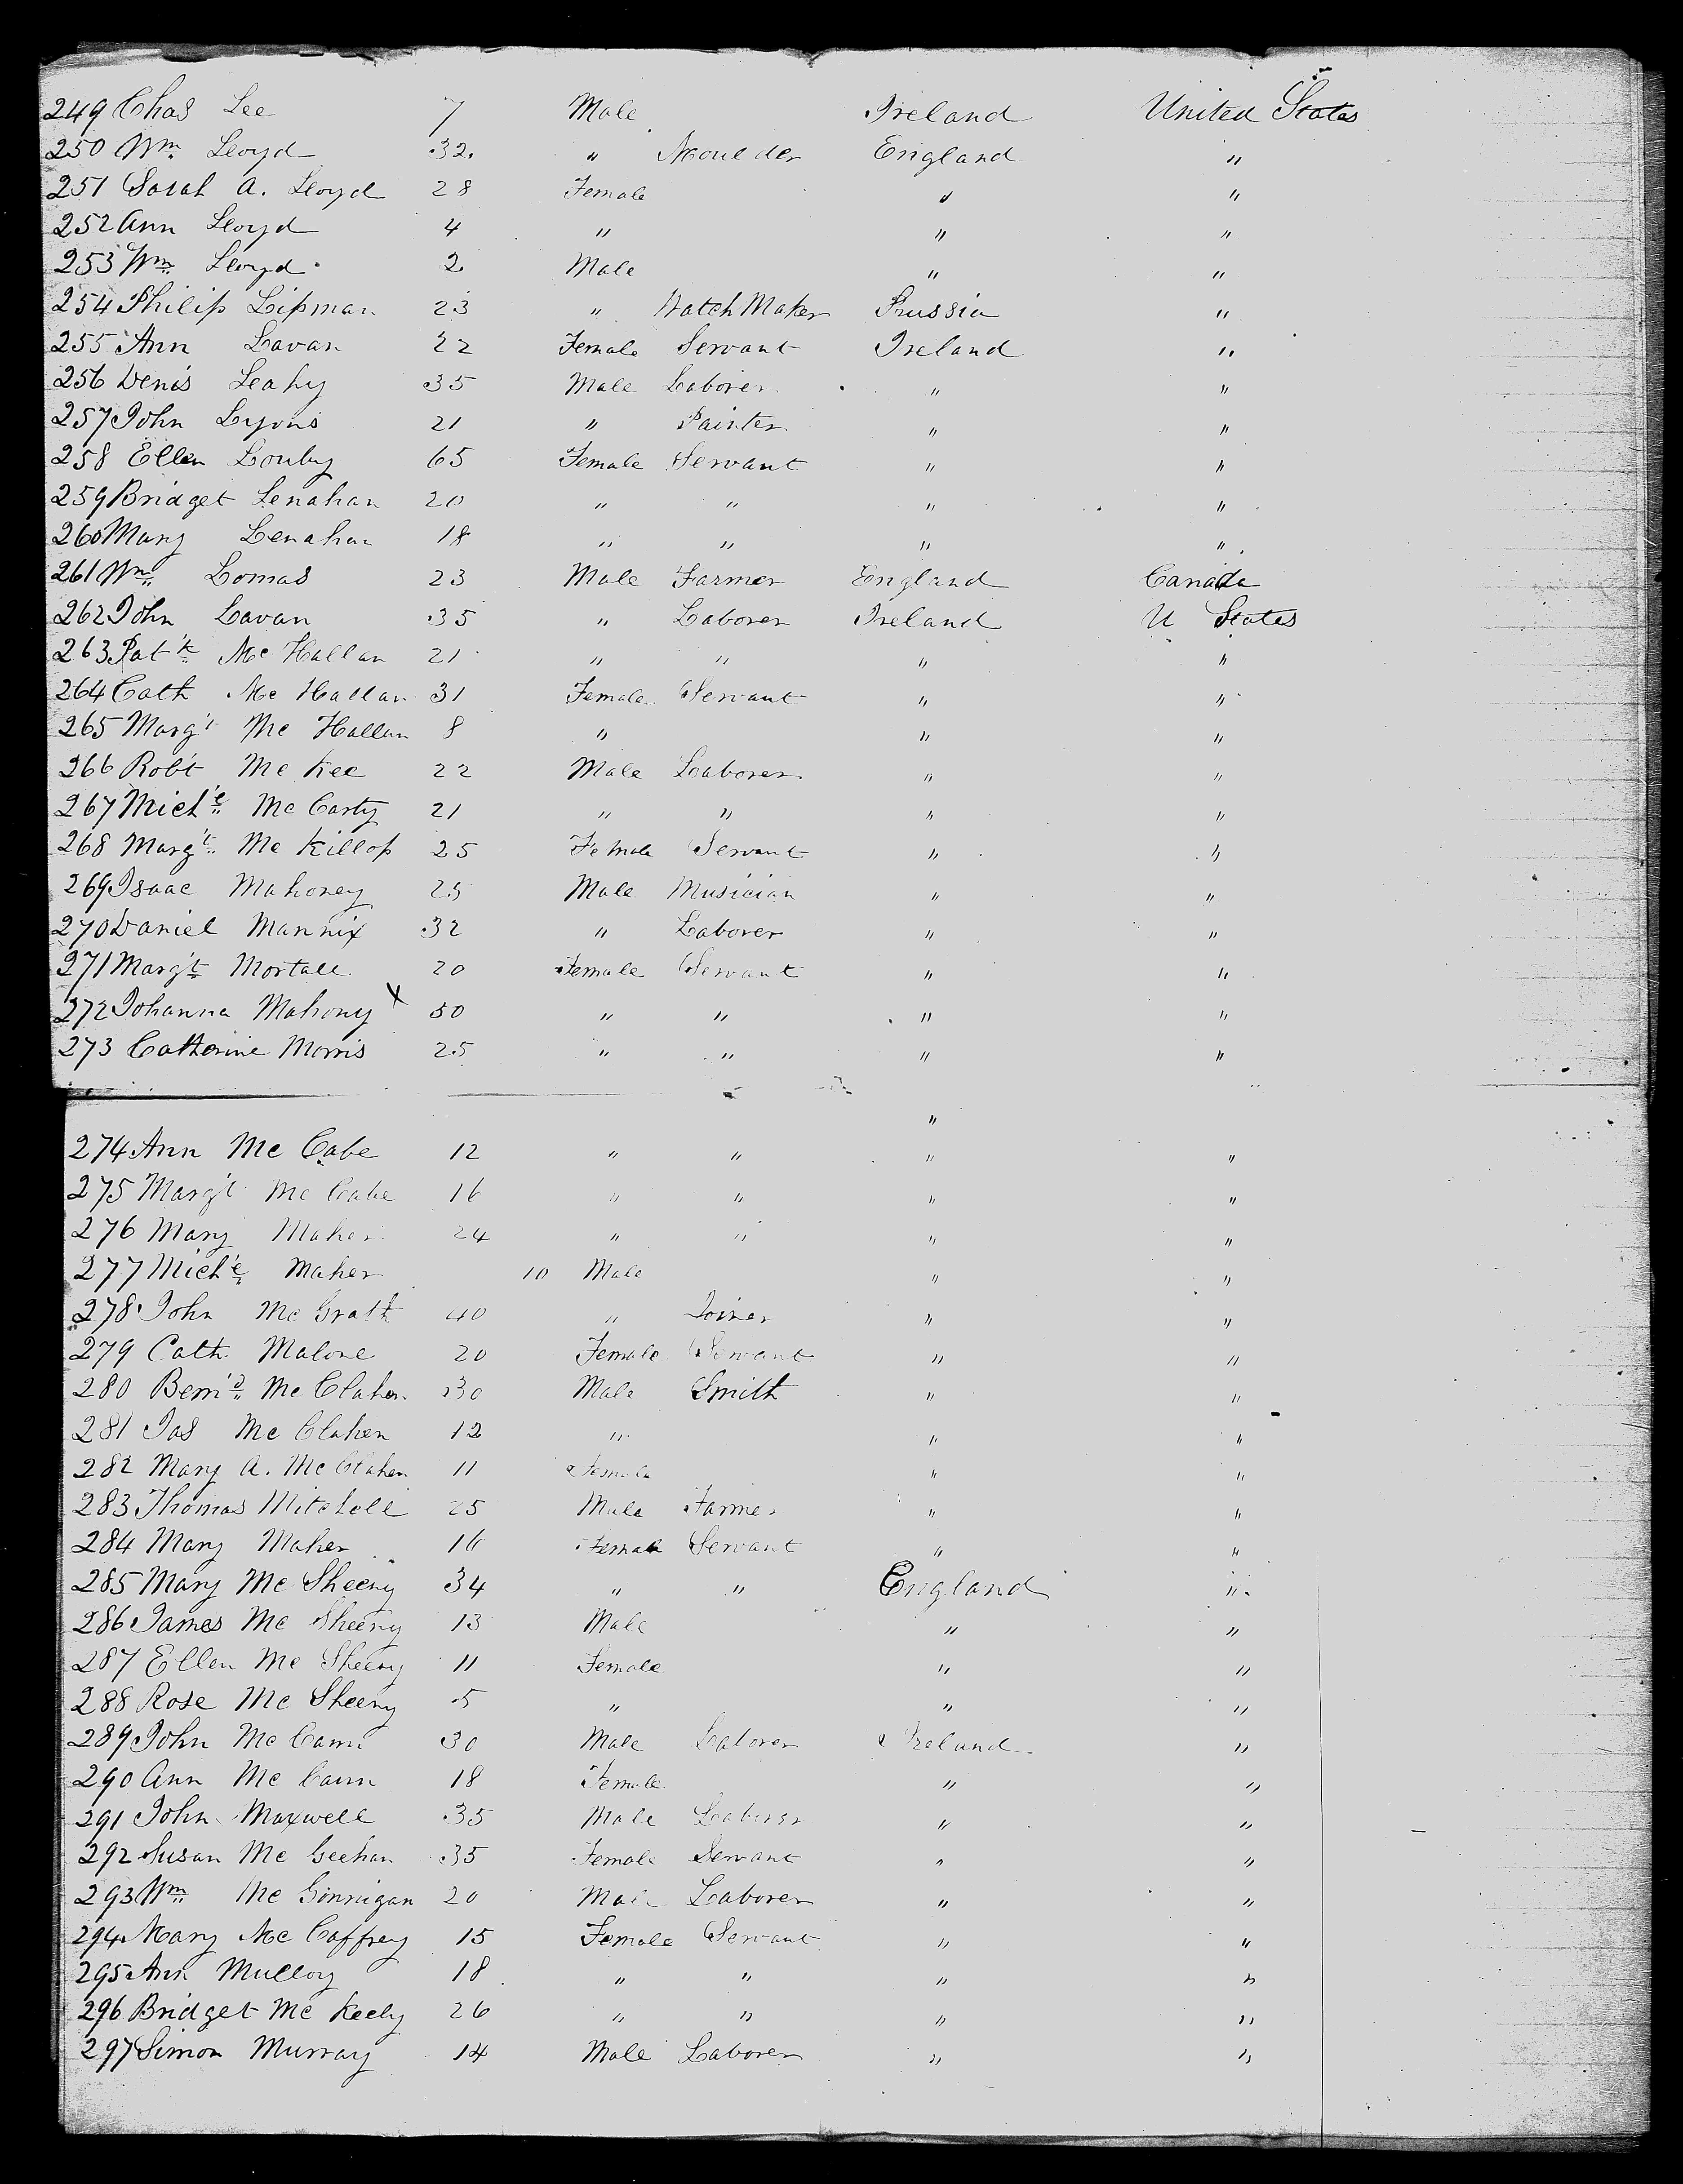 249 Chas Lee 7 Male Ireland United States
250 Wm Lloyd 32 " Moulder England "
251 Sarah A. Lloyd 28 Female " "
252 Ann Lloyd 4 " " "
253 Wm Lloyd 2 Male " "
254 Philip Lipman 23 " Watch Maker Prussia "
255 Ann Lavan 22 Female Servant Ireland "
256 Denis Leahy 35 Male Laborer " "
257 John Lyons 21 " Painter " "
258 Ellen Louby 65 Female Servant " "
259 Bridget Lenahan 20 " " " "
260 Mary Lenahan 18 " " " "
261 Wm Lomas 23 Male Farmer England Canada
262 John Lavan 35 " Laborer Ireland U States
263 Pat'k Mc Hallan 21 " " " "
264 Cath Mc Hallan 31 Female Servant " "
265 Marg't Mc Hallan 8 " " "
266 Rob't Mc Kee 22 Male Laborer " "
267 Mich'l Mc Carty 21 " " " "
268 Marg't Mc Killop 25 Female Servant " "
269 Isaac Mahoney 25 Male Musician " "
270 Daniel Mannix 32 " Laborer " "
271 Marg't Mortall 20 Female Servant " "
272 Johanna Mahony x 50 " " " "
273 Catherine Morris 25 " " " "
"
274 Ann Mc Cabe 12 " " " "
275 Marg't Mc Cabe 16 " " " "
276 Mary Maher 24 " " " "
277 Mich'l Maher 10 Male " "
278 John Mc Grath 40 " Joiner " "
279 Cath Malone 20 Female Servant " "
280 Bern'd Mc Clahen 30 Male Smith " "
281 Jas Mc Clahen 12 " " "
282 Mary A. Mc Clahen 11 Female " "
283 Thomas Mitchell 25 Male Farmer " "
284 Mary Maher 16 Female Servant " "
285 Mary Mc Sheeny 34 " " England "
286 James Mc Sheeny 13 Male " "
287 Ellen Mc Sheeny 11 Female " "
288 Rose Mc Sheeny 5 " " "
289 John Mc Cann 30 Male Laborer Ireland "
290 Ann Mc Cann 18 Female " "
291 John Maxwell 35 Male Laborer " "
292 Susan Mc Geehan 35 Female Servant " "
293 Wm Mc Gonnigan 20 Male Laborer " "
294 Mary Mc Caffrey 15 Female Servant " "
295 Ann Mulloy 18 " " " "
296 Bridget Mc Keely 26 " " " "
297 Simon Murray 14 Male Laborer " "